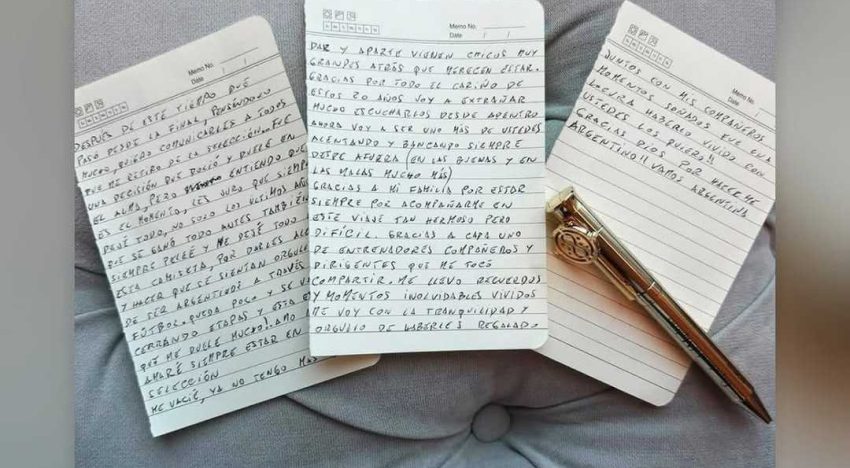 Memo No.
Date
DESPUÉS DE ESTE TIEMPO QUE
PASÓ DESDE LA FINAL, PENSÁNDOLO
MUCHO, QUIERO COMUNICARLES A TODOS
QUE ME RETIRO DE LA SELECCIÓN. FUE
UNA DECISIÓN QUE DOLIÓ Y DUELE EN
EL ALMA, PERO ENTIENDO QUE
ES EL MOMENTO, LES JURO QUE SIEMPRE
DEJÉ TODO, NO SOLO LOS ULTIMOS AÑOS
QUE SE GANÓ TODO ANTES TAMBIÉN
SIEMPRE PELEÉ Y ME DEJÉ TODO
ESTA CAMISETA, POR DARLES
Y HACER QUE SE SIENTAN
DE SER ARGENTINOS A TRAVÉS
FÚTBOL. QUEDA POCO Y SE
CERRANDO ETAPAS Y ESTA
QUE ME DUELE MUCHO! AMO
AMARÉ SIEMPRE ESTAR EN
SELECCIÓN
ME VACIÉ, YA NO TENGO MÁS
Memo No.
Date
DAR Y APARTE VIENEN CHICOS MUY
GRANDES ATRÁS QUE MERECEN ESTAR.
GRACIAS POR TODO EL CARIÑO DE
ESTOS 20 AÑOS VOY A EXTRAÑAR
MUCHO ESCUCHARLOS DESDE ADENTRO
AHORA VOY A SER UNO MÁS DE USTEDES
ALENTANDO Y BANCANDO SIEMPRE
DESDE AFUERA (EN LAS BUENAS Y EN
LAS MALAS MUCHO MÁS)
GRACIAS A MI FAMILIA POR ESTAR
SIEMPRE POR ACOMPAÑARME EN
ESTE VIAJE TAN HERMOSO PERO
DIFÍCIL. GRACIAS A CADA UNO
DE ENTRENADORES COMPAÑEROS Y
DIRIGENTES QUE ME TOCÓ
COMPARTIR. ME LLEVO RECUERDOS
Y MOMENTOS INOLVIDABLES VIVIDOS
ME VOY CON LA TRANQUILIDAD Y
ORGULLO DE HABERLES REGALADO
Memo No.
Date
JUNTOS CON MIS COMPAÑEROS
MOMENTOS SOÑADOS FUE UNA
LOCURA HABERLO VIVIDO CON
USTEDES LOS QUIERO!!
GRACIAS DIOS POR HACERME
ARGENTINO!! VAMOS ARGENTINA